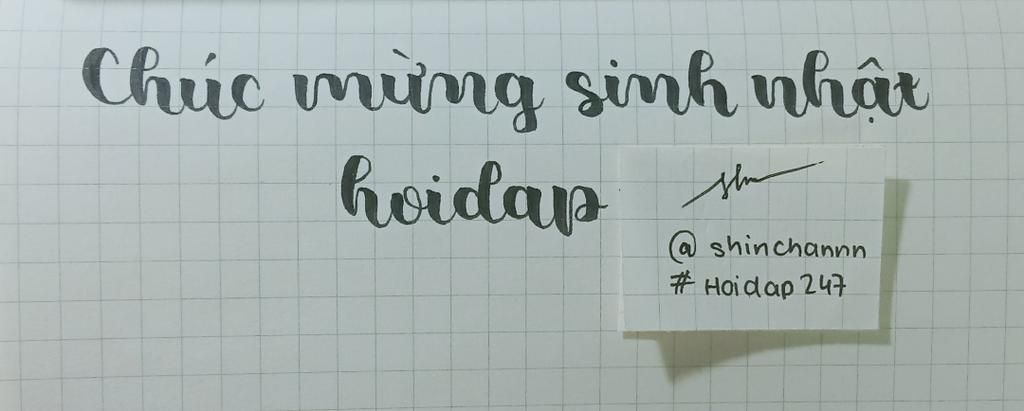 Chúc mừng sinh nhật
hoidap
@ shinchannn
# Hoidap 247